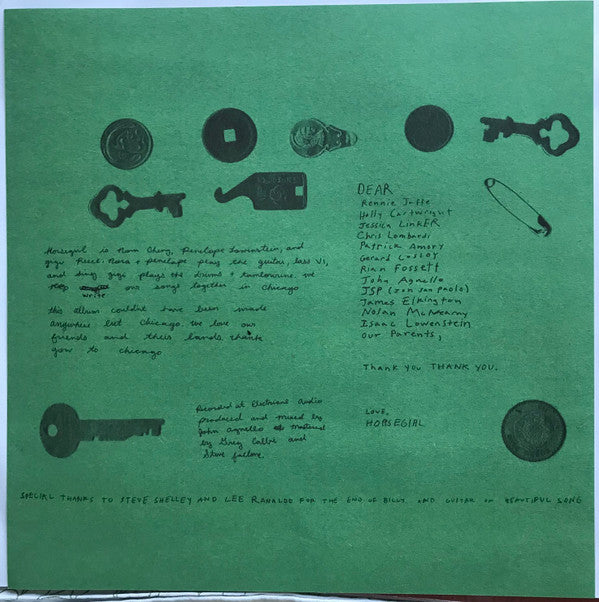 DEAR
Ronnie Jaffe
Holly Cartwright
Jessica LINKER
Chris Lombardi
Patrick Amory
Gerard Cosloy
Rian Fossett
John Agnello
JSP (Jon San Paolo)
James Elkington
Nolan McMeany
Isaac Lowenstein
our Parents,
Thank you THANK YOU.
LOVE,
HORSEGIRL
Horsegirl is Nora Cheng, Penelope Lowenstein, and
gigi Reece. Nora + Penelope play the guitar, bass VI,
and sing gigi plays the drums + tambourine. we
write our songs together in Chicago
this album couldnt have been made
anywhere but Chicago we love our
friends and their bands. thank
you to chicago
Recorded at Electrical Audio
produced and mixed by
John Agnello mastered
by Greg Calbi and
Steve fallone
SPECIAL THANKS TO STEVE SHELLEY AND LEE RANALDO FOR THE END OF BILLY AND GUITAR ON BEAUTIFUL SONG